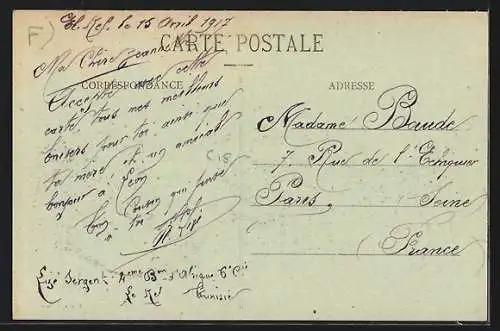 El Kef, le 15 Avril 1917
CARTE POSTALE
Ma Chère Jeanne
CORRESPONDANCE
Accepte avec cette
carte, tous mes meilleurs
baisers pour toi, ainsi que
ta mère et un amical
bonjour à Léon
Ton Cousin qui pense
à toi
ADRESSE
Madame Baude
7, Rue de l'Echiquier
Paris, Seine
France
4eme Bon d'Afrique 6e Cie
Le Kef Tunisie